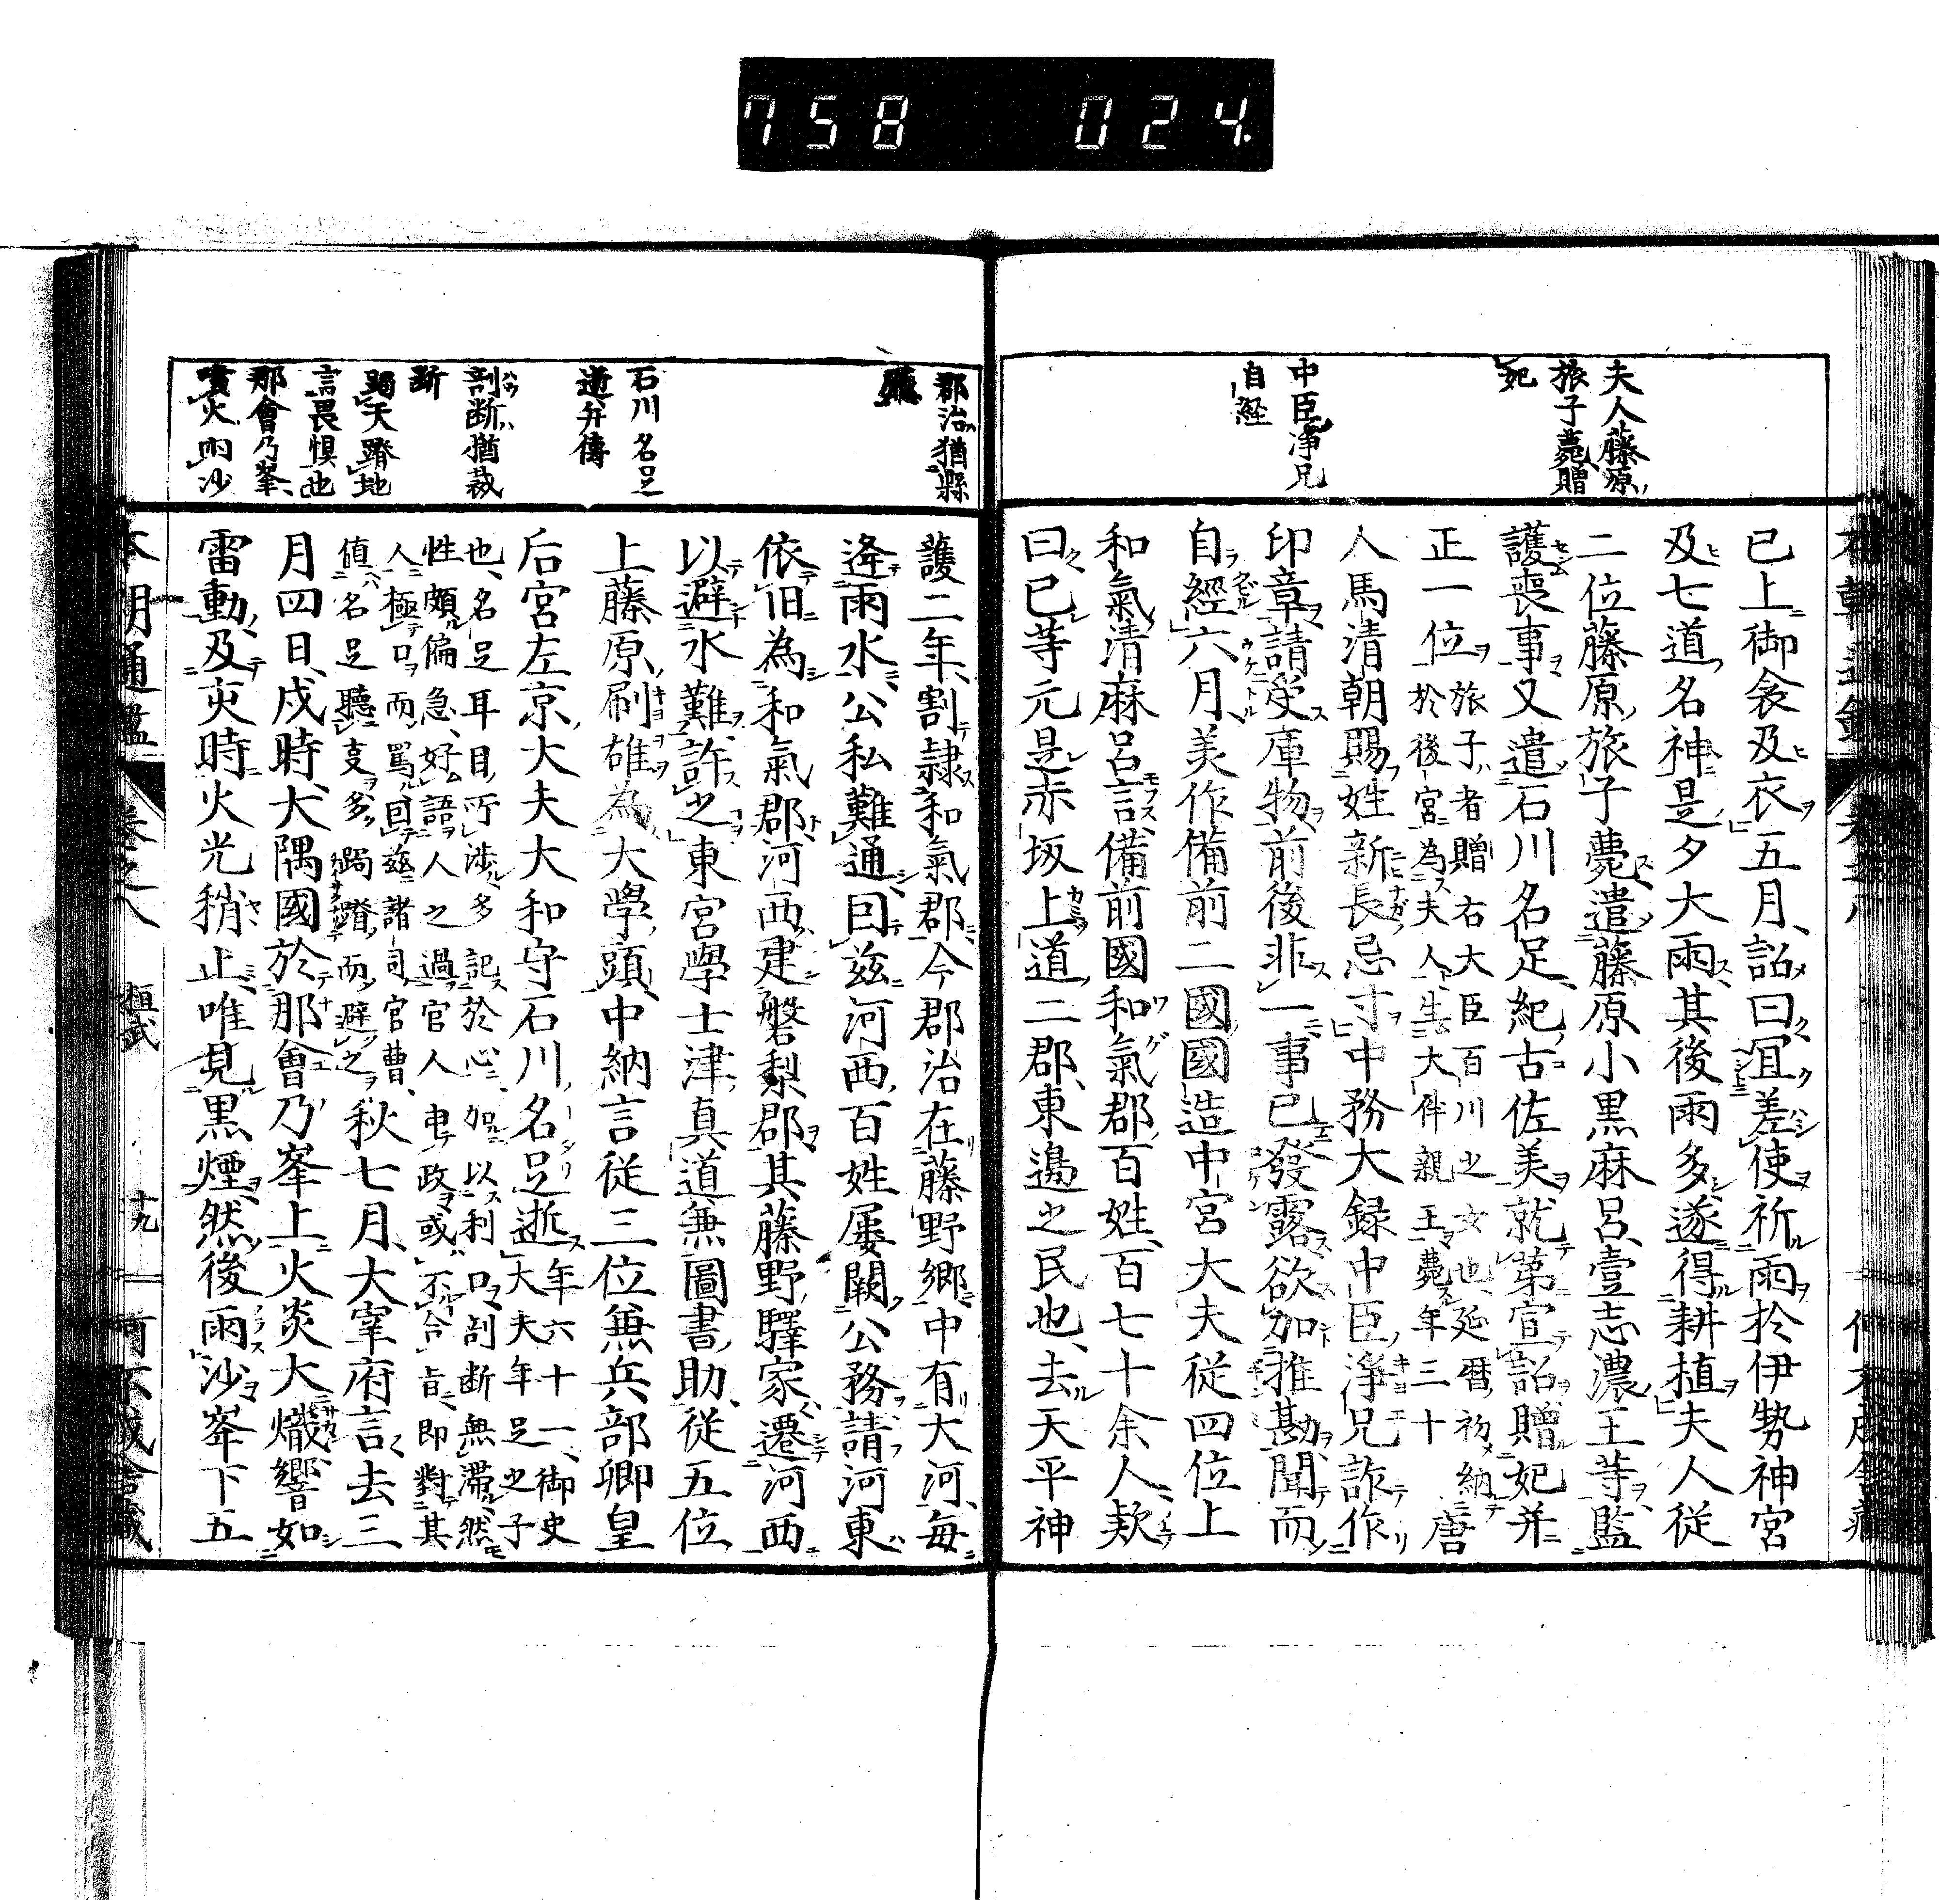 758 024.
夫人藤原
旅子薨贈
妃
中臣淨兄
自経
已上御衾及衣五月詔曰宜差使祈雨於伊勢神宮
及七道名神是夕大雨其後雨多遂得耕植夫人從
二位藤原旅子薨遣藤原小黒麻呂壹志濃王等監
護喪事又遣石川名足紀古佐美就第宣詔贈妃并
正一位旅子者贈右大臣百川之女也延暦初納
於後宮為夫人生大伴親王薨年三十唐
人馬清朝賜姓新長忌寸中務大録中臣淨兄詐作
印章請受庫物前後非一事已發露欲加推勘聞而
自經六月美作備前二國國造中宮大夫従四位上
和氣清麻呂言備前國和氣郡百姓百七十余人款
曰已等元是赤坂上道二郡東邊之民也去天平神
郡治猶縣
石川名足
逝并傳
剖断猶裁
断
跼天蹐地
言畏惧也
那會乃峯
噴火雨沙
護二年割隷和氣郡今郡治在藤野郷中有大河毎
逢雨水公私難通因茲河西百姓屡闕公務請河東
依旧為和氣郡河西建磐梨郡其藤野驛家遷河西
以避水難許之東宮學士津真道兼圖書助従五位
上藤原刷雄為大學頭中納言従三位兼兵部卿皇
后宮左京大夫大和守石川名足逝年六十一御史
大夫年足之子
也名足耳目所渉多記於心加以利口剖断無滞然
性頗偏急好語人之過官人申政或不合旨即對其
人極口而罵因茲諸司官曹
値名足聽事多跼蹐而避之秋七月大宰府言去三
月四日戌時大隅國於那會乃峯上火炎大熾響如
雷動及亥時火光稍止唯見黒煙然後雨沙峯下五
本朝通鑑 巻之八 桓武 十九